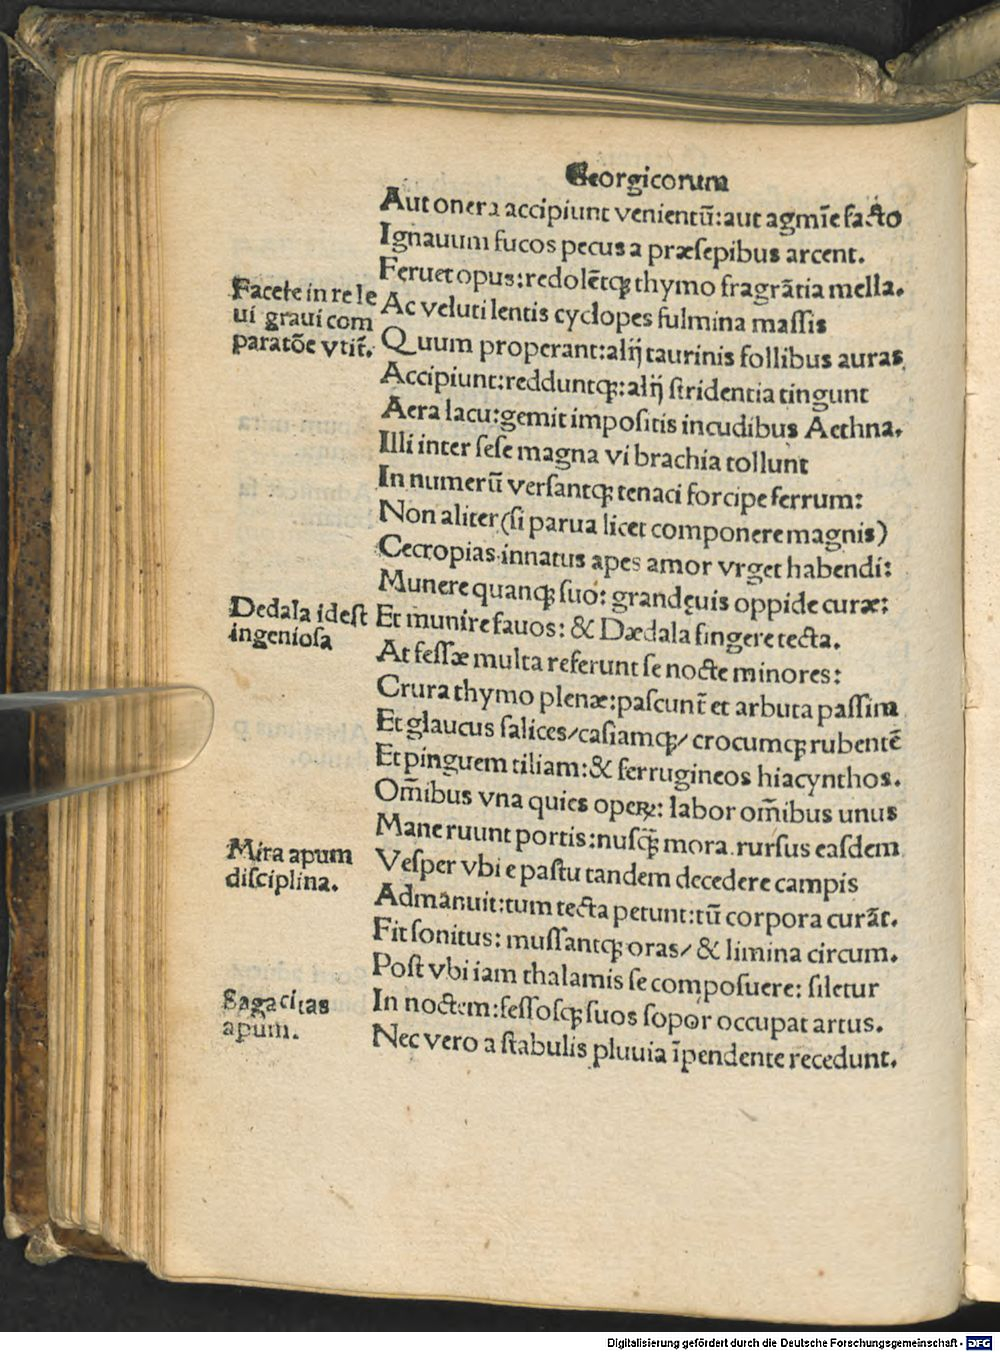 Georgicorum
Aut onera accipiunt venientū: aut agmīe facto
Ignauum fucos pecus a præsepibus arcent.
Feruet opus: redolētqꝫ thymo fragrātia mella.
Facete in re le
ui graui com
paratōe vtit̄.
Ac veluti lentis cyclopes fulmina massis
Quum properant: alij taurinis follibus auras
Accipiunt: redduntqꝫ: alij stridentia tingunt
Aera lacu: gemit impositis incudibus Aethna.
Illi inter sese magna vi brachia tollunt
In numerū versantqꝫ tenaci forcipe ferrum:
Non aliter (si parua licet componere magnis)
Cecropias innatus apes amor vrget habendi:
Munere quanqꝫ suo: grandęuis oppide curæ:
Dedala idest
ingeniosa
Et munire fauos: & Dædala fingere tecta.
At fessæ multa referunt se nocte minores:
Crura thymo plenæ: pascunt̄ et arbuta passim
Et glaucus salices/ casiamqꝫ/ crocumqꝫ rubentē
Et pinguem tiliam: & ferrugineos hiacynthos.
Om̄ibus vna quies operꝝ: labor om̄ibus unus
Mane ruunt portis: nusqꝫ̄ mora. rursus easdem
Mira apum
disciplina.
Vesper vbi e pastu tandem decedere campis
Admanuit: tum tecta petunt: tū corpora curāt.
Fit sonitus: mussantqꝫ oras/ & limina circum.
Post vbi iam thalamis se composuere: siletur
Sagacitas
apum.
In noctem: fessosqꝫ suos sopor occupat artus.
Nec vero a stabulis pluuia īpendente recedunt.
Digitalisierung gefördert durch die Deutsche Forschungsgemeinschaft - DFG